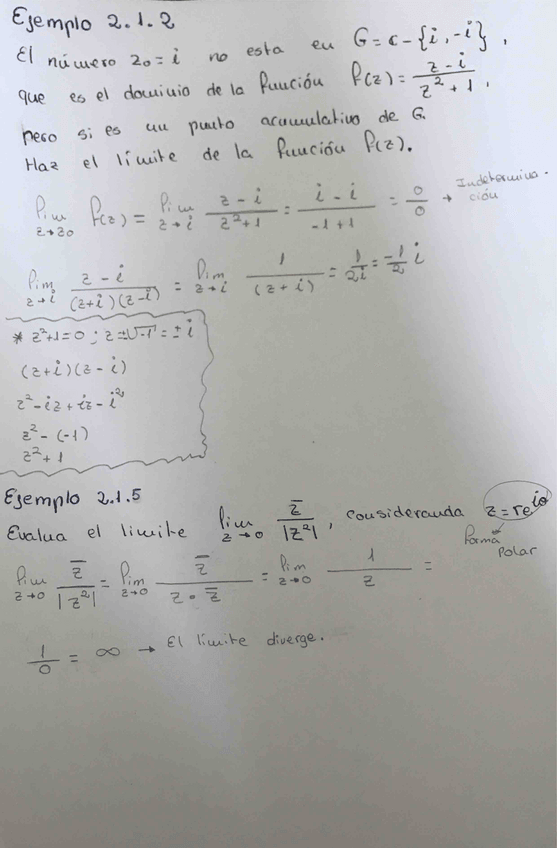 Ejemplo 2.1.2
El número z₀ = i no esta en G = C - {i, -i},
que es el dominio de la función f(z) = (z - i)/(z² + 1),
pero si es un punto acumulativo de G.
Haz el límite de la función f(z).
lim z→z₀ f(z) = lim z→i (z - i)/(z² + 1) = (i - i)/(-1 + 1) = 0/0 → Indeterminación
lim z→i (z - i)/((z+i)(z-i)) = lim z→i 1/(z+i) = 1/2i = -1/2 i
* z²+1=0 ; z=±√-1 = ±i
(z+i)(z-i)
z² - iz + iz - i²
z² - (-1)
z² + 1
Ejemplo 2.1.5
Evalua el limite lim z→0 z̅/|z²|, considerando z = re^{iθ}
Forma Polar
lim z→0 z̅/|z²| = lim z→0 z̅/(z · z̅) = lim z→0 1/z =
1/0 = ∞ → El límite diverge.